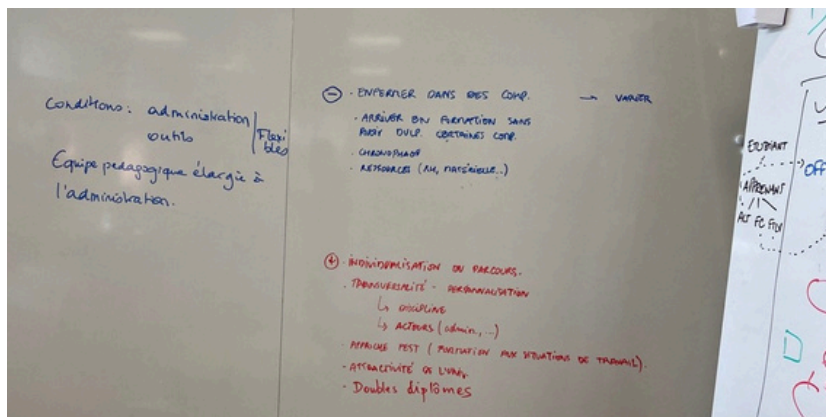 Conditions : administration
outils
Flexi
bles
Equipe pedagogique élargie à
l'administration.
⊖ · ENFERMER DANS DES COMP. → VARIER
· ARRIVER EN FORMATION SANS
AVOIR DVLP. CERTAINES COMP.
· CHRONOPHAGE
· RESSOURCES (RH, MATÉRIELLE..)
⊕ · INDIVIDUALISATION DU PARCOURS.
· TRANSVERSALITÉ - PERSONNALISATION
↳ DISCIPLINE
↳ ACTEURS (admin, ...)
· APPROCHE FEST (FORMATION AUX SITUATIONS DE TRAVAIL).
· ATTRACTIVITÉ DE L'UNIV.
· Doubles diplômes
ETUDIANT
OFF
APPRENANT
ALT FC FTLV